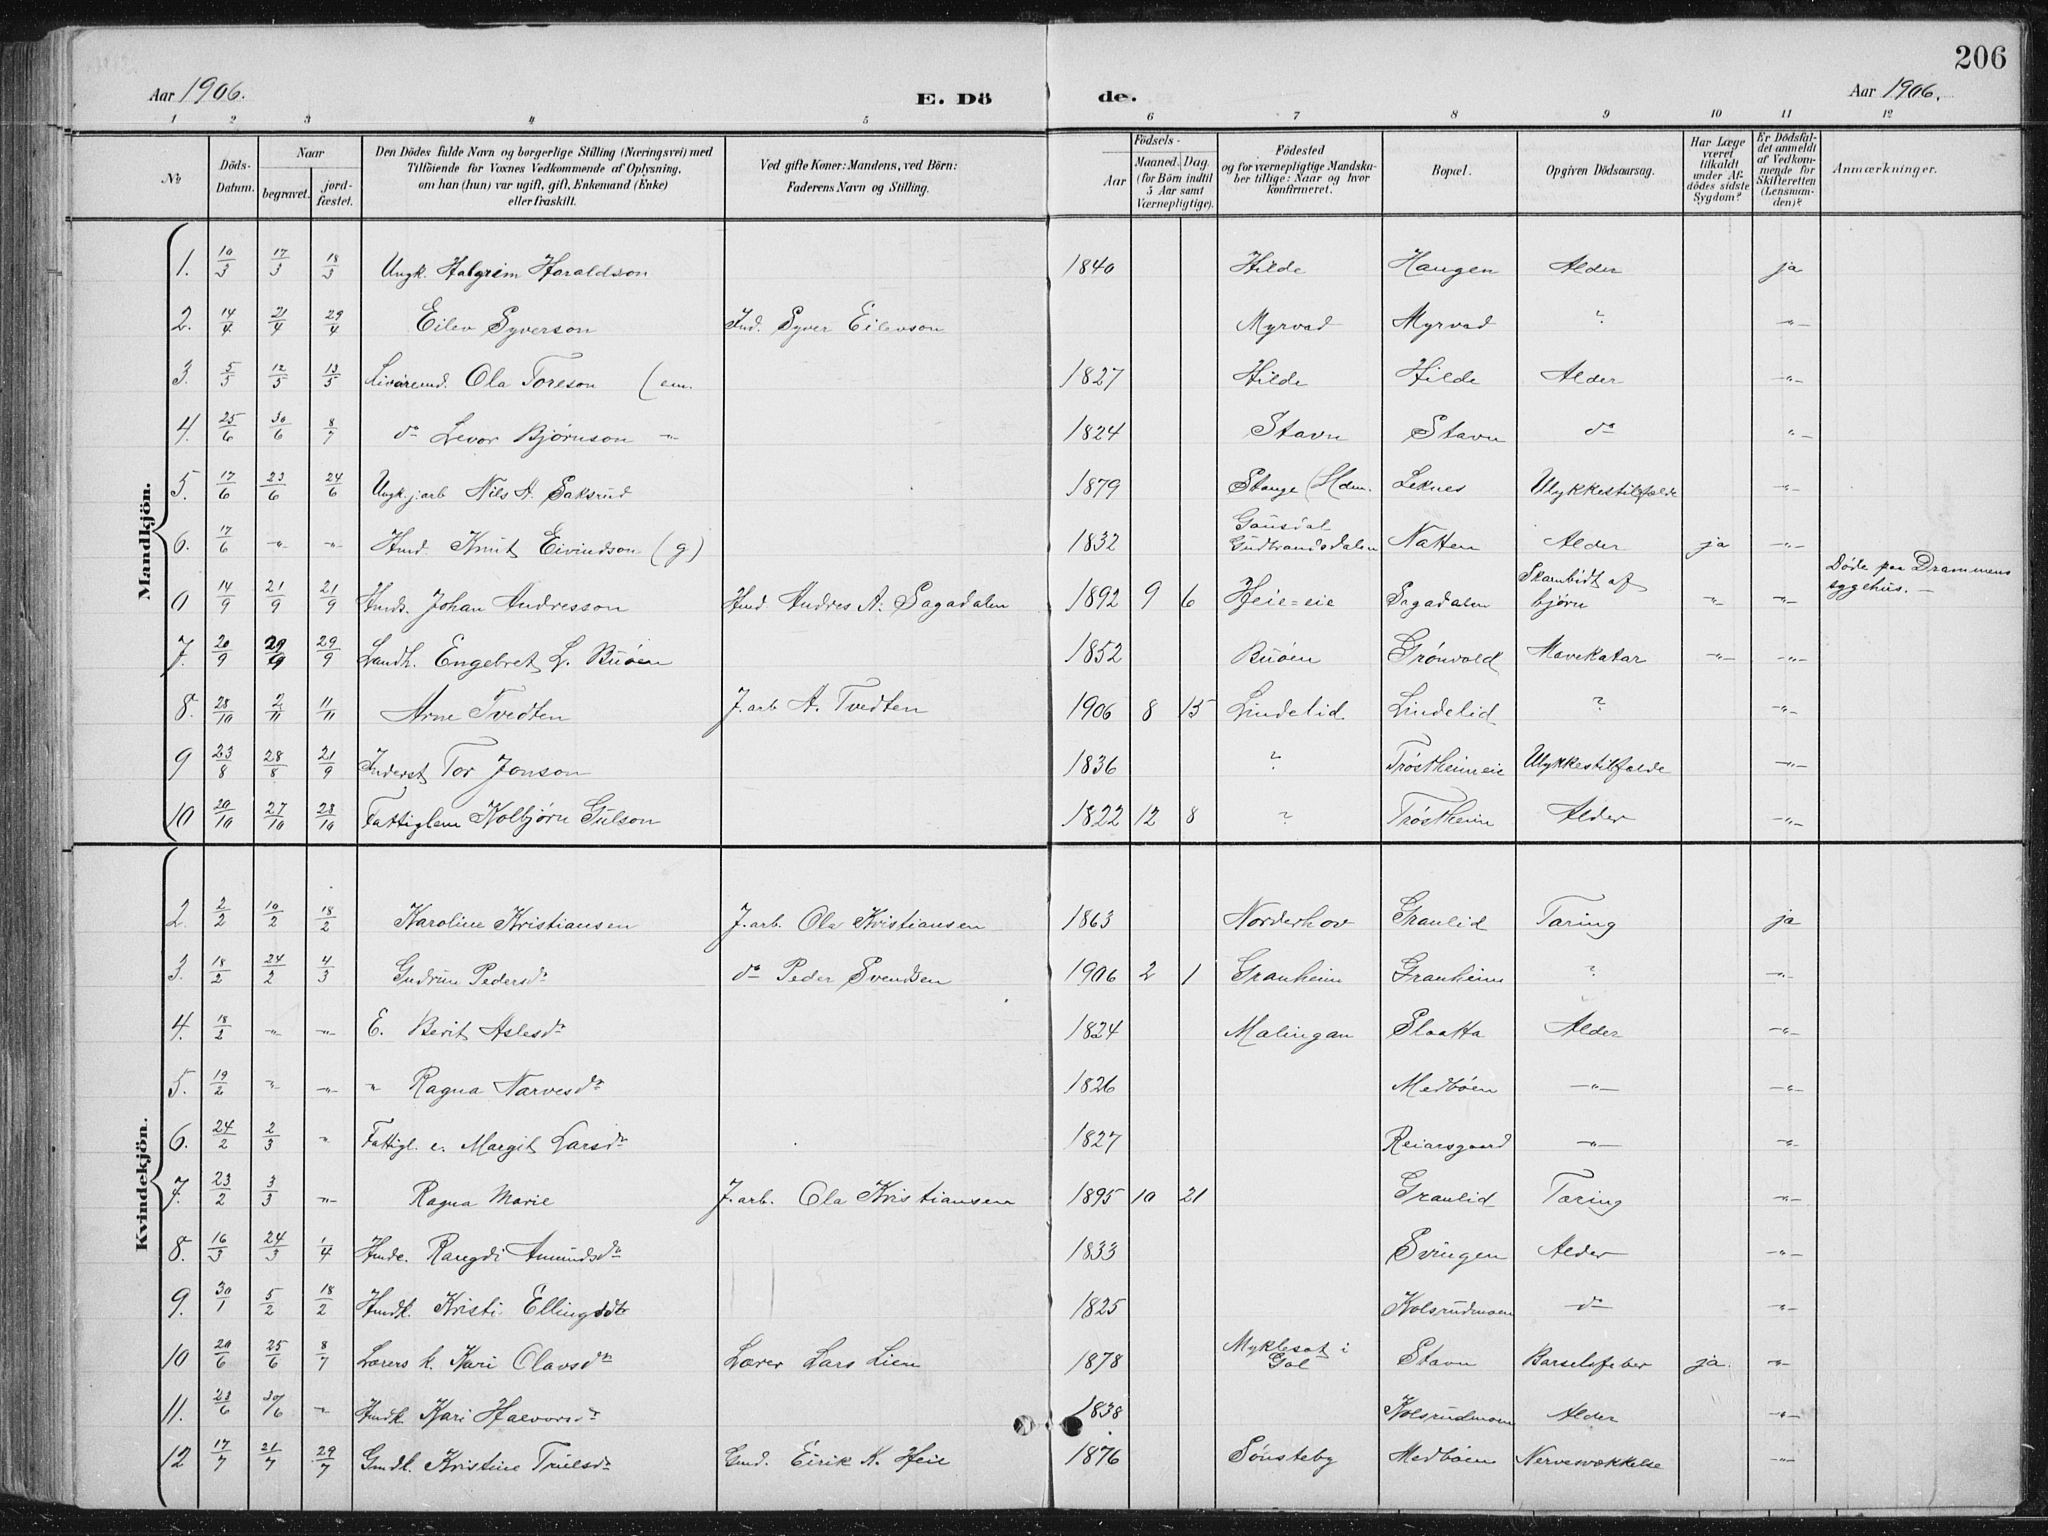 206
Aar 1906. E. Dö de. Aar 1906.
1 2 3 4 5 6 7 8 9 10 11 12
No Döds-Datum. Naar begravet. jord-fæstet. Den Dödes fulde Navn og borgerlige Stilling (Næringsvei) med Tilföiende for Voxnes Vedkommende af Oplysning, om han (hun) var ugift, gift, Enkemand (Enke) eller fraskilt. Ved gifte Koner: Mandens, ved Börn: Faderens Navn og Stilling. Födsels- Aar Maaned. Dag. (for Börn indtil 5 Aar samt Værnepligtige). Födested og for værnepligtige Mandska-ber tillige: Naar og hvor konfirmeret. Bopæl. Opgiven Dödsaarsag. Har Læge været tilkaldt under Af-dödes sidste Sygdom? Er Dödsfal-det anmeldt af Vedkom-mende for Skifteretten (Lensman-den)? Anmærkninger.
Mandkjön.
1. 10/3 17/3 18/3 Ungk. Halgrim Haraldson 1840 Hilde Haugen Alder ja
2. 14/4 21/4 29/4 Eilev Syverson Ind. Syver Eilevson Myrvad Myrvad ? -"-
3. 5/5 12/5 13/5 Livøremd. Ola Toreson (em. 1827 Hilde Hilde Alder -"-
4. 25/6 30/6 8/7 do Levor Bjørnson -"- 1824 Stavn Stavn do -"-
5. 17/6 23/6 24/6 Ungk. j.arb Nils A. Saksrud 1879 Stange (Hdm. Leknes Ulykkestilfælde -"-
6. 17/6 -"- -"- Hmd. Knut Eivindson (g) 1832 Gausdal Gudbrandsdalen Natten Alder ja -"-
0 14/9 21/9 21/9 Hmds. Johan Andresson Hmd. Andres A. Sagadalen 1892 9 6 Heie=eie Sagadalen Skambidt af bjørn -"- -"- Døde paa Drammens sygehus.
7. 20/9 29/9 29/9 Landh. Engebret L. Buøen 1852 Buøen Grønvold Mavekatar -"- -"-
8. 28/10 2/11 11/11 Arne Tvedten J.arb A. Tvedten 1906 8 15 Lindelid Lindelid ? -"-
9 23/8 28/8 21/9 Inderst Tor Jonson 1836 ? Trøstheimeie Ulykkestilfælde -"-
10 20/10 27/10 28/10 Fattiglem Kolbjørn Gulson 1822 12 8 ? Trøstheim Alder -"-
Kvindekjön.
2. 2/2 10/2 18/2 Karoline Kristiansen J.arb. Ola Kristiansen 1863 Norderhov Granlid Tæring ja
3. 18/2 24/2 4/3 Gudrun Pedersdr do Peder Svendsen 1906 2 1 Granheim Granheim ? -"-
4. 18/2 -"- -"- E. Berit Aslesdr 1824 Malingan Slaatta Alder -"-
5. 19/2 -"- -"- " Ragna Narvesdr 1826 Medbøen -"- -"-
6. 24/2 2/3 " Fattigl. e. Margit Larsdr 1827 Reiarsgaard -"- -"-
7. 23/2 3/3 -"- Ragna Marie J.arb. Ola Kristiansen 1895 10 21 Granlid Tæring -"-
8. 16/3 24/3 1/4 Hmdk. Rangdi Amundsdr 1833 Svingen Alder -"-
9. 30/1 5/2 18/2 Hmdk. Kristi Ellingsdtr 1825 Kolsrudmoen do -"-
10 20/6 25/6 8/7 Lærers k. Kari Olavsdr Lærer Lars Lien 1878 Myklesat i Gol Stavn Barselsfeber ja. -"-
11. 23/6 30/6 " Hmdk. Kari Halvorsdr 1838 Kolsrudmoen Alder -"-
12 17/7 21/7 29/7 Gmdk. Kristine Truelsdr Gmd. Eirik K. Heie 1876 Sønsteby Medbøen Nervesvækkelse -"-